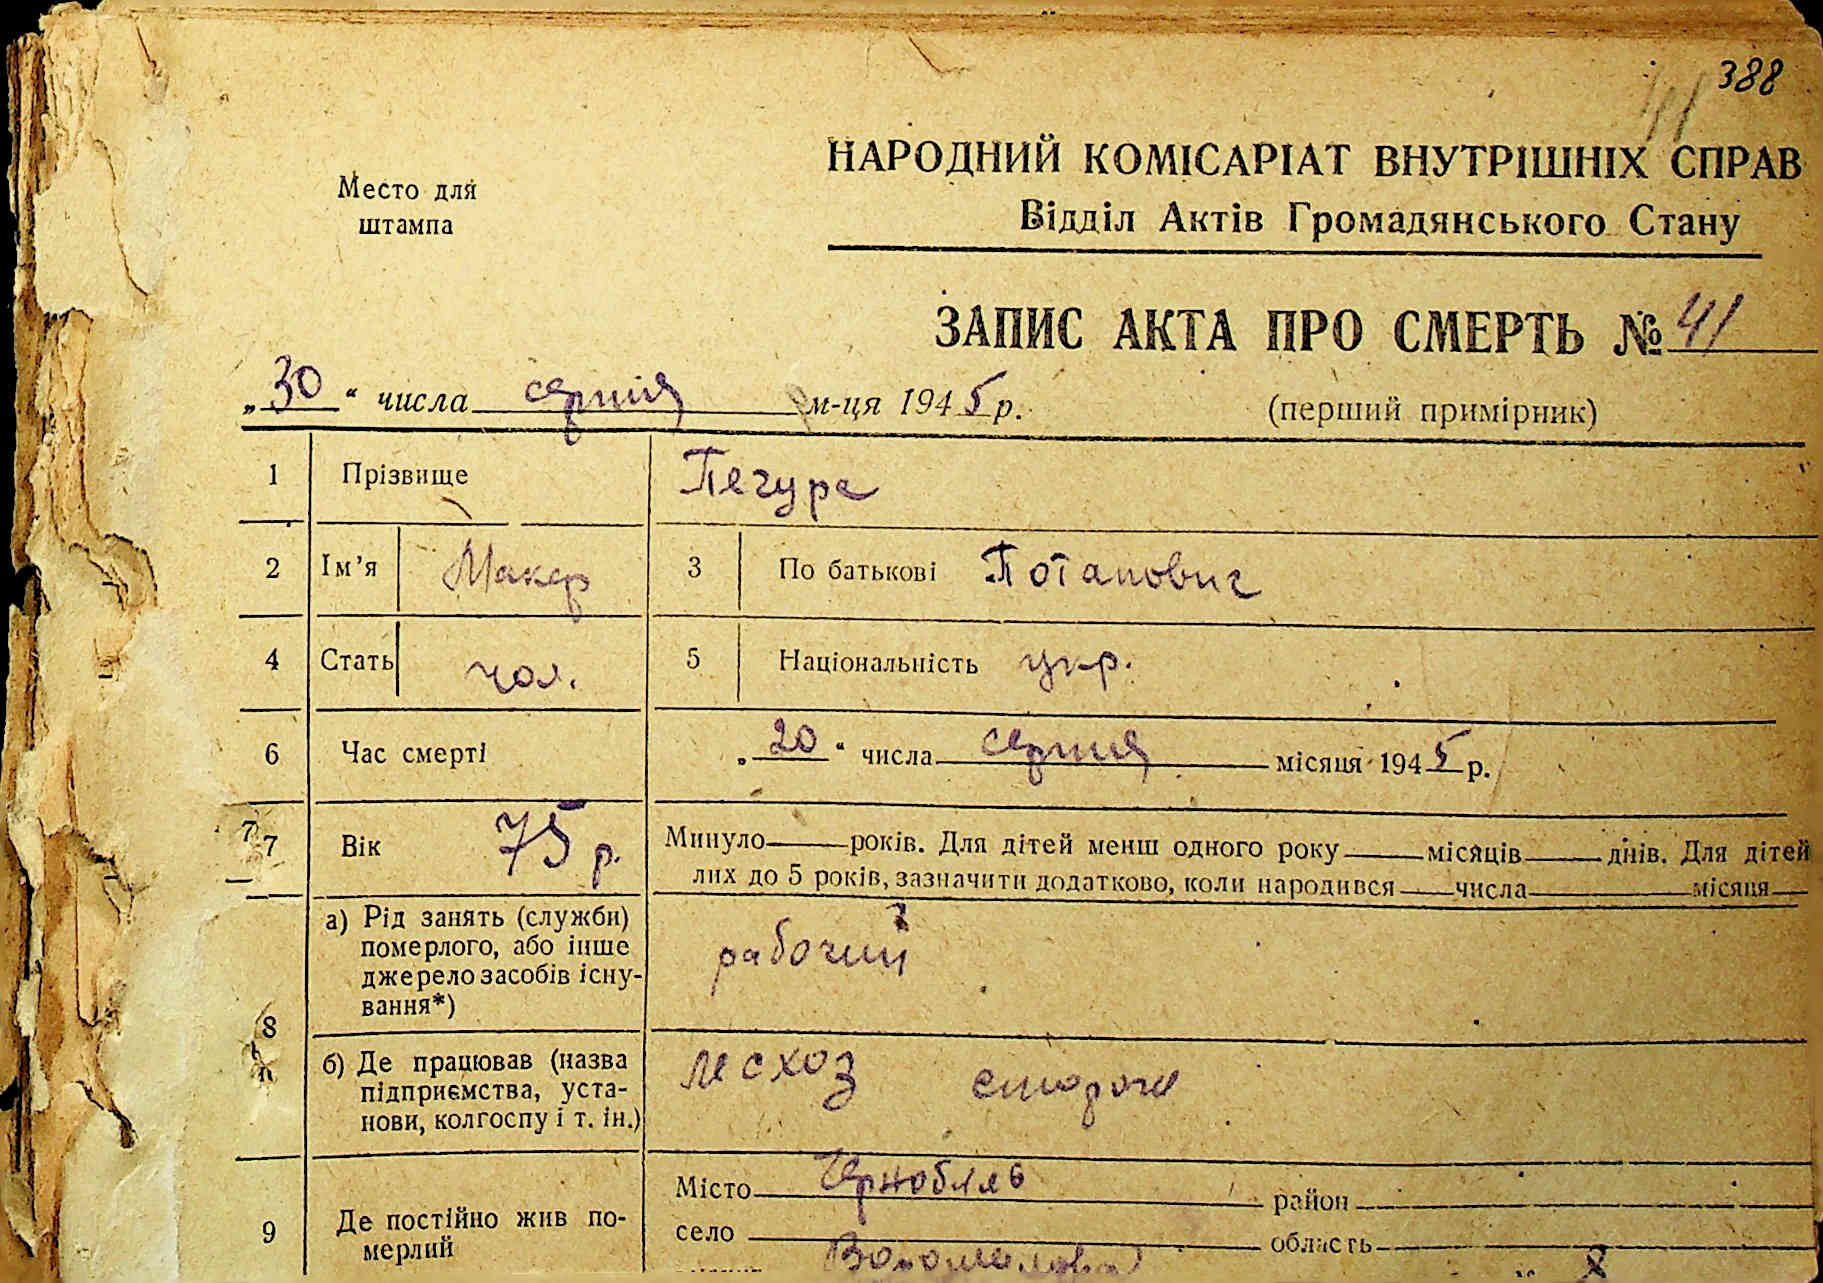 388
41
НАРОДНИЙ КОМІСАРІАТ ВНУТРІШНІХ СПРАВ
Відділ Актів Громадянського Стану
Место для
штампа
ЗАПИС АКТА ПРО СМЕРТЬ № 41
„30“ числа серпня м-ця 1945 р.
(перший примірник)
1 Прізвище Печура
2 Ім’я Макар 3 По батькові Потапович
4 Стать чол. 5 Національність укр.
6 Час смерті „20“ числа серпня місяця 1945 р.
7 7 Вік 75 р. Минуло років. Для дітей менш одного року місяців днів. Для дітей
лих до 5 років, зазначити додатково, коли народився числа місяця
8 а) Рід занять (служби)
померлого, або інше
джерело засобів існу-
вання*)
рабочий
б) Де працював (назва
підприємства, уста-
нови, колгоспу і т. ін.)
лесхоз сторож
9 Де постійно жив по-
мерлий
Місто Чернобль район
село область